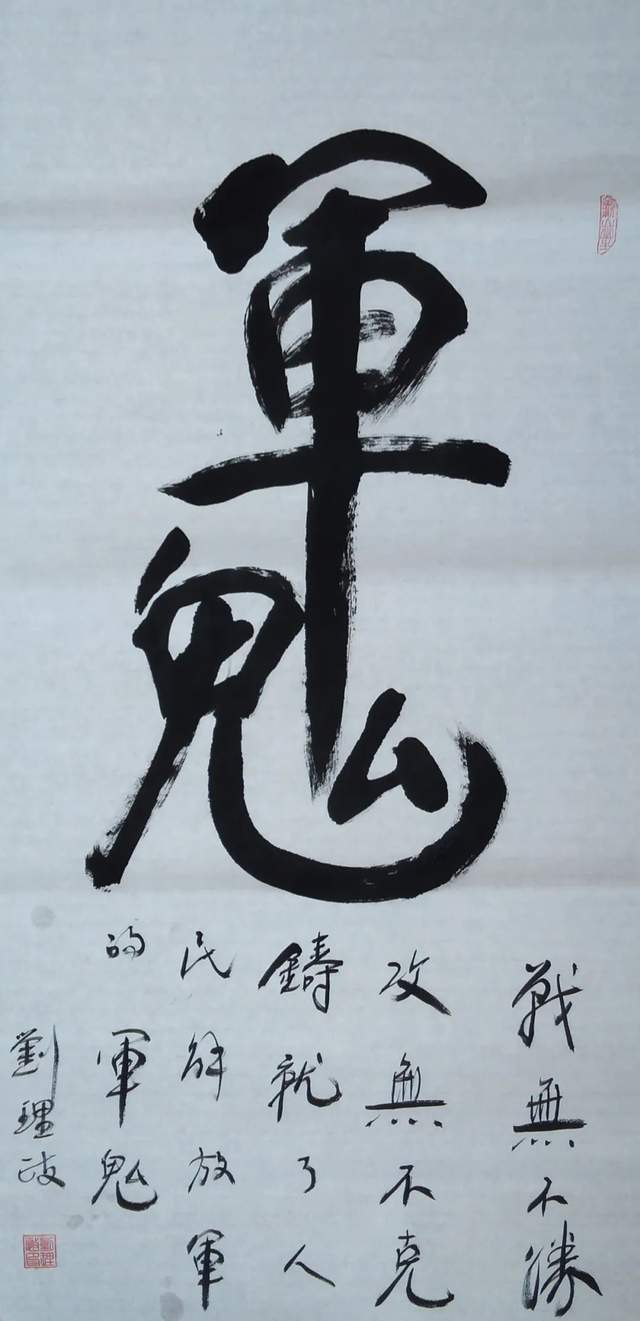 軍鬼
戰無不勝
攻無不克
鑄就了人
民解放軍
的軍鬼
劉理